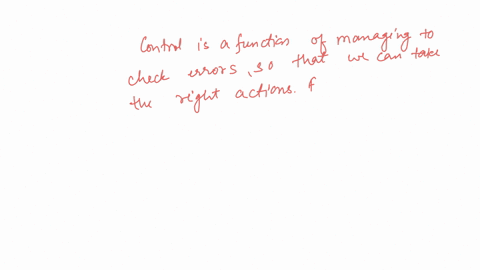 Control is a function of managing to
check errors, so that we can take
the right actions. f